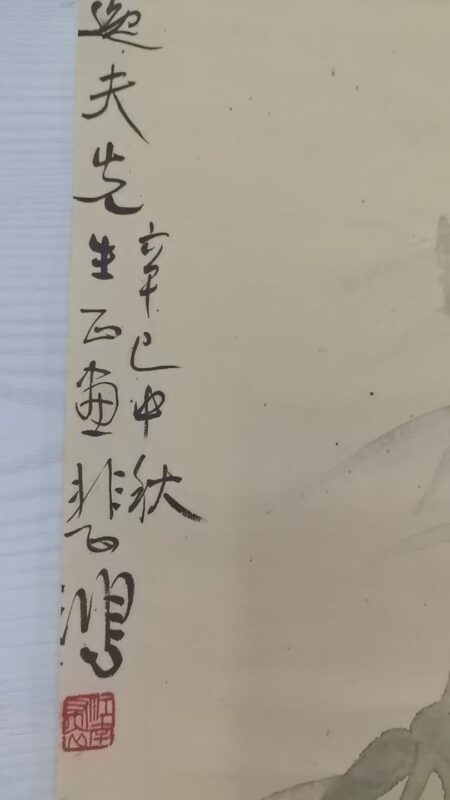 辛巳中秋
逸夫先生正画悲鸿
江南